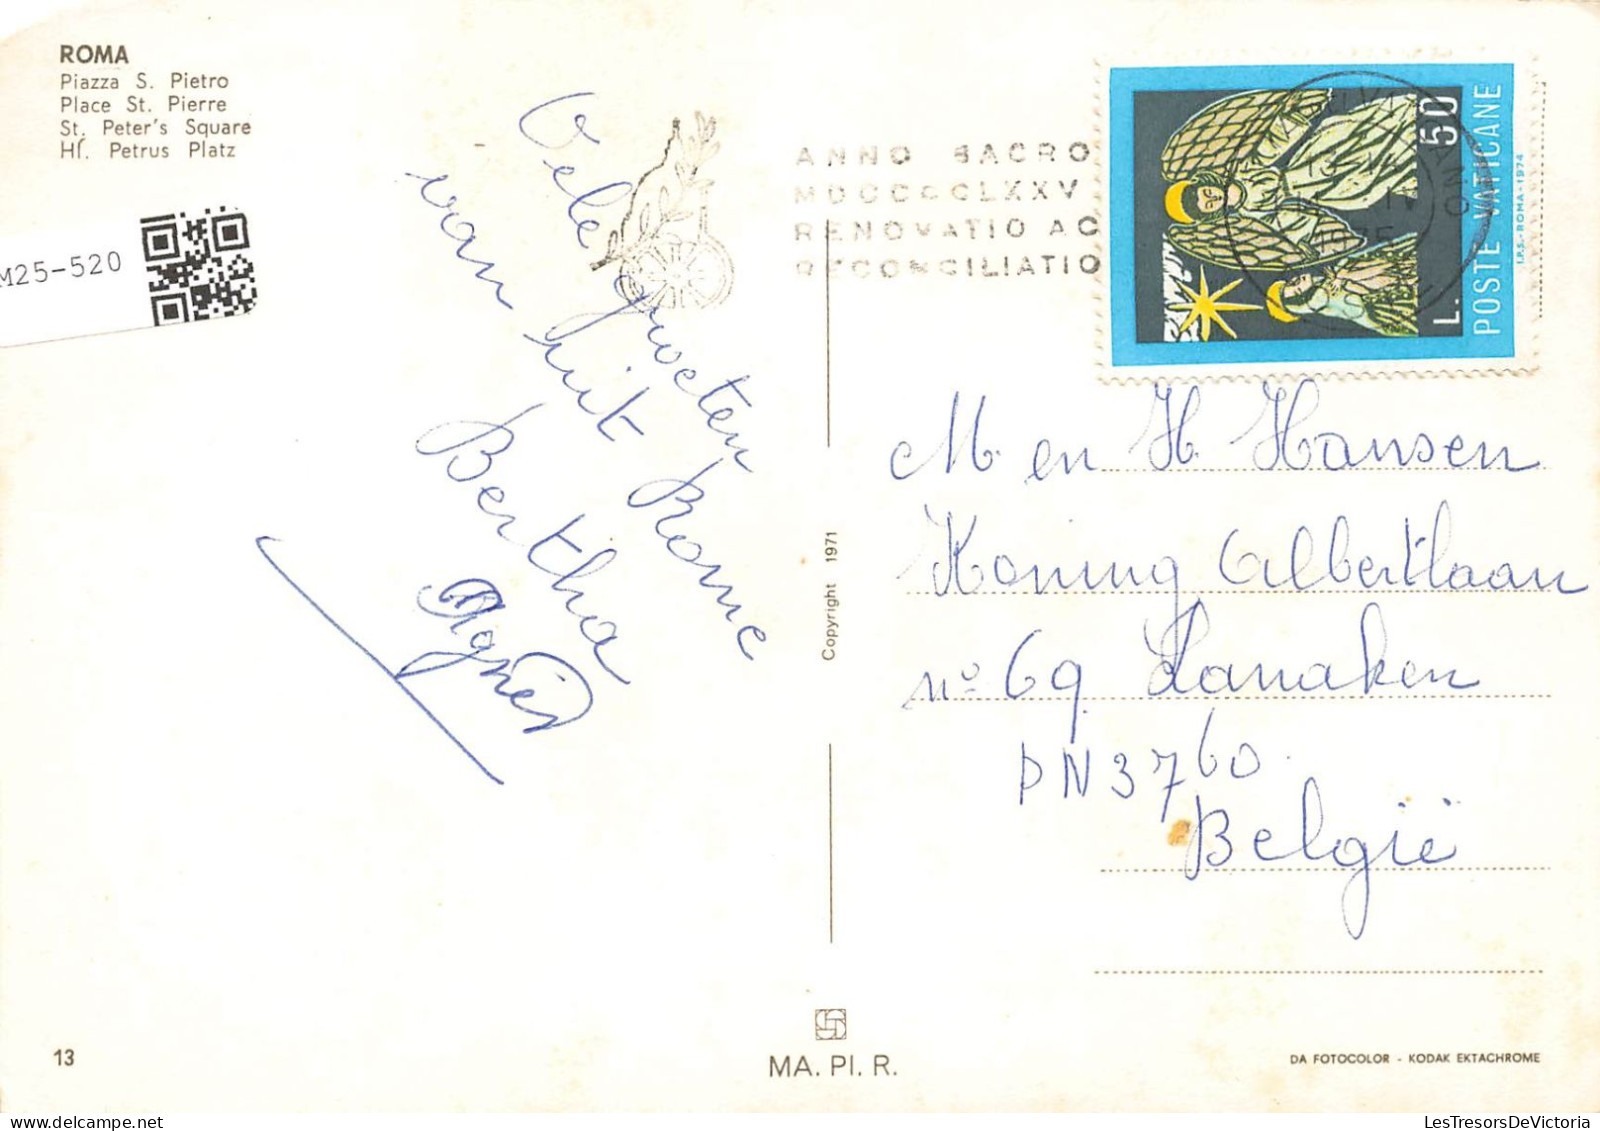 ROMA
Piazza S. Pietro
Place St. Pierre
St. Peter's Square
Hf. Petrus Platz
M25-520
Vele groeten
van uit Rome
Bertha
Agnès
ANNO SACRO
MDCCCCLXXV
RENOVATIO AC
RECONCILIATIO
L. 50
POSTE VATICANE
I.P.S.-ROMA-1974
1975
M. en H. Hansen
Koning Albertlaan
nº 69 Lanaken
PN 3760.
België
Copyright 1971
13
MA. PI. R.
DA FOTOCOLOR - KODAK EKTACHROME
LesTresorsDeVictoria